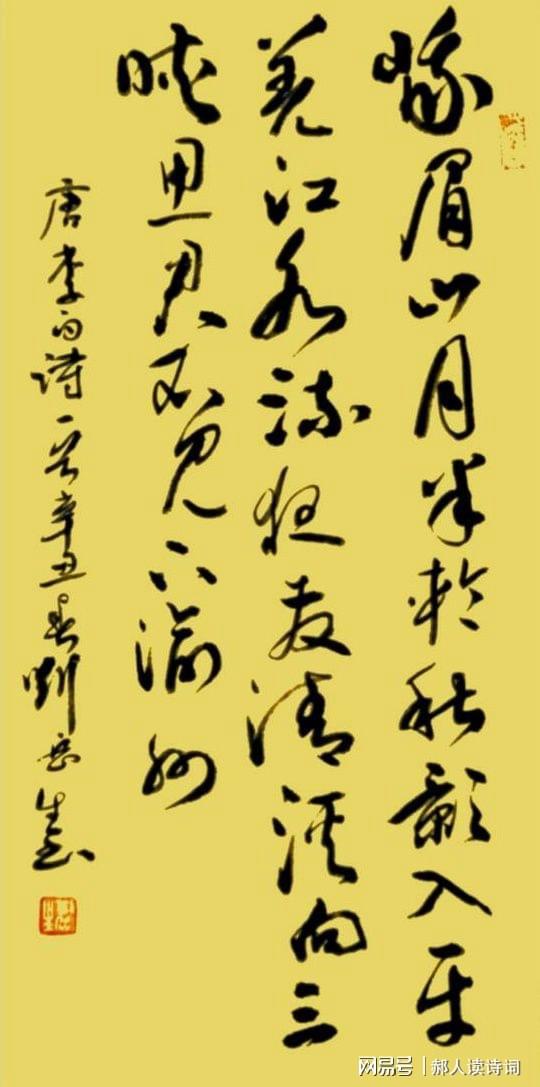 峨眉山月半轮秋影入平
羌江水流夜发清溪向三
峡思君不见下渝州
唐李白诗一首辛丑春刘岳生
网易号 | 郝人读诗词